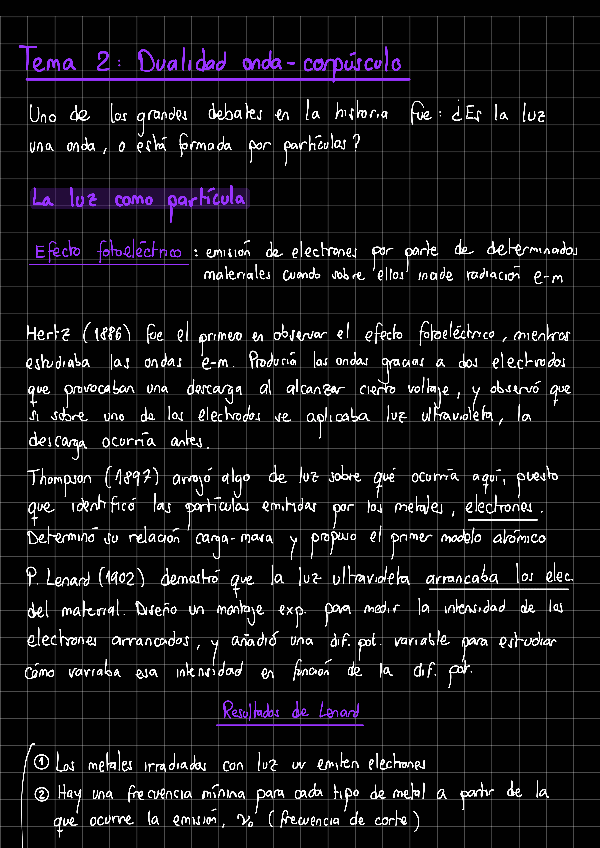 Tema 2: Dualidad onda-corpúsculo
Uno de los grandes debates en la historia fue: ¿Es la luz
una onda, o está formada por partículas?
La luz como partícula
Efecto fotoeléctrico: emisión de electrones por parte de determinados
materiales cuando sobre ellos incide radiación e-m
Hertz (1886) fue el primero en observar el efecto fotoeléctrico, mientras
estudiaba las ondas e-m. Producía las ondas gracias a dos electrodos
que provocaban una descarga al alcanzar cierto voltaje, y observó que
si sobre uno de los electrodos se aplicaba luz ultravioleta, la
descarga ocurría antes.
Thompson (1897) arrojó algo de luz sobre qué ocurría aquí, puesto
que identificó las partículas emitidas por los metales, electrones.
Determinó su relación carga-masa y propuso el primer modelo atómico
P. Lenard (1902) demostró que la luz ultravioleta arrancaba los elec.
del material. Diseño un montaje exp. para medir la intensidad de los
electrones arrancados, y añadió una dif. pot. variable para estudiar
cómo variaba esa intensidad en función de la dif. pot.
Resultados de Lenard
① Los metales irradiados con luz uv emiten electrones
② Hay una frecuencia mínima para cada tipo de metal a partir de la
que ocurre la emisión, ν₀ (frecuencia de corte)